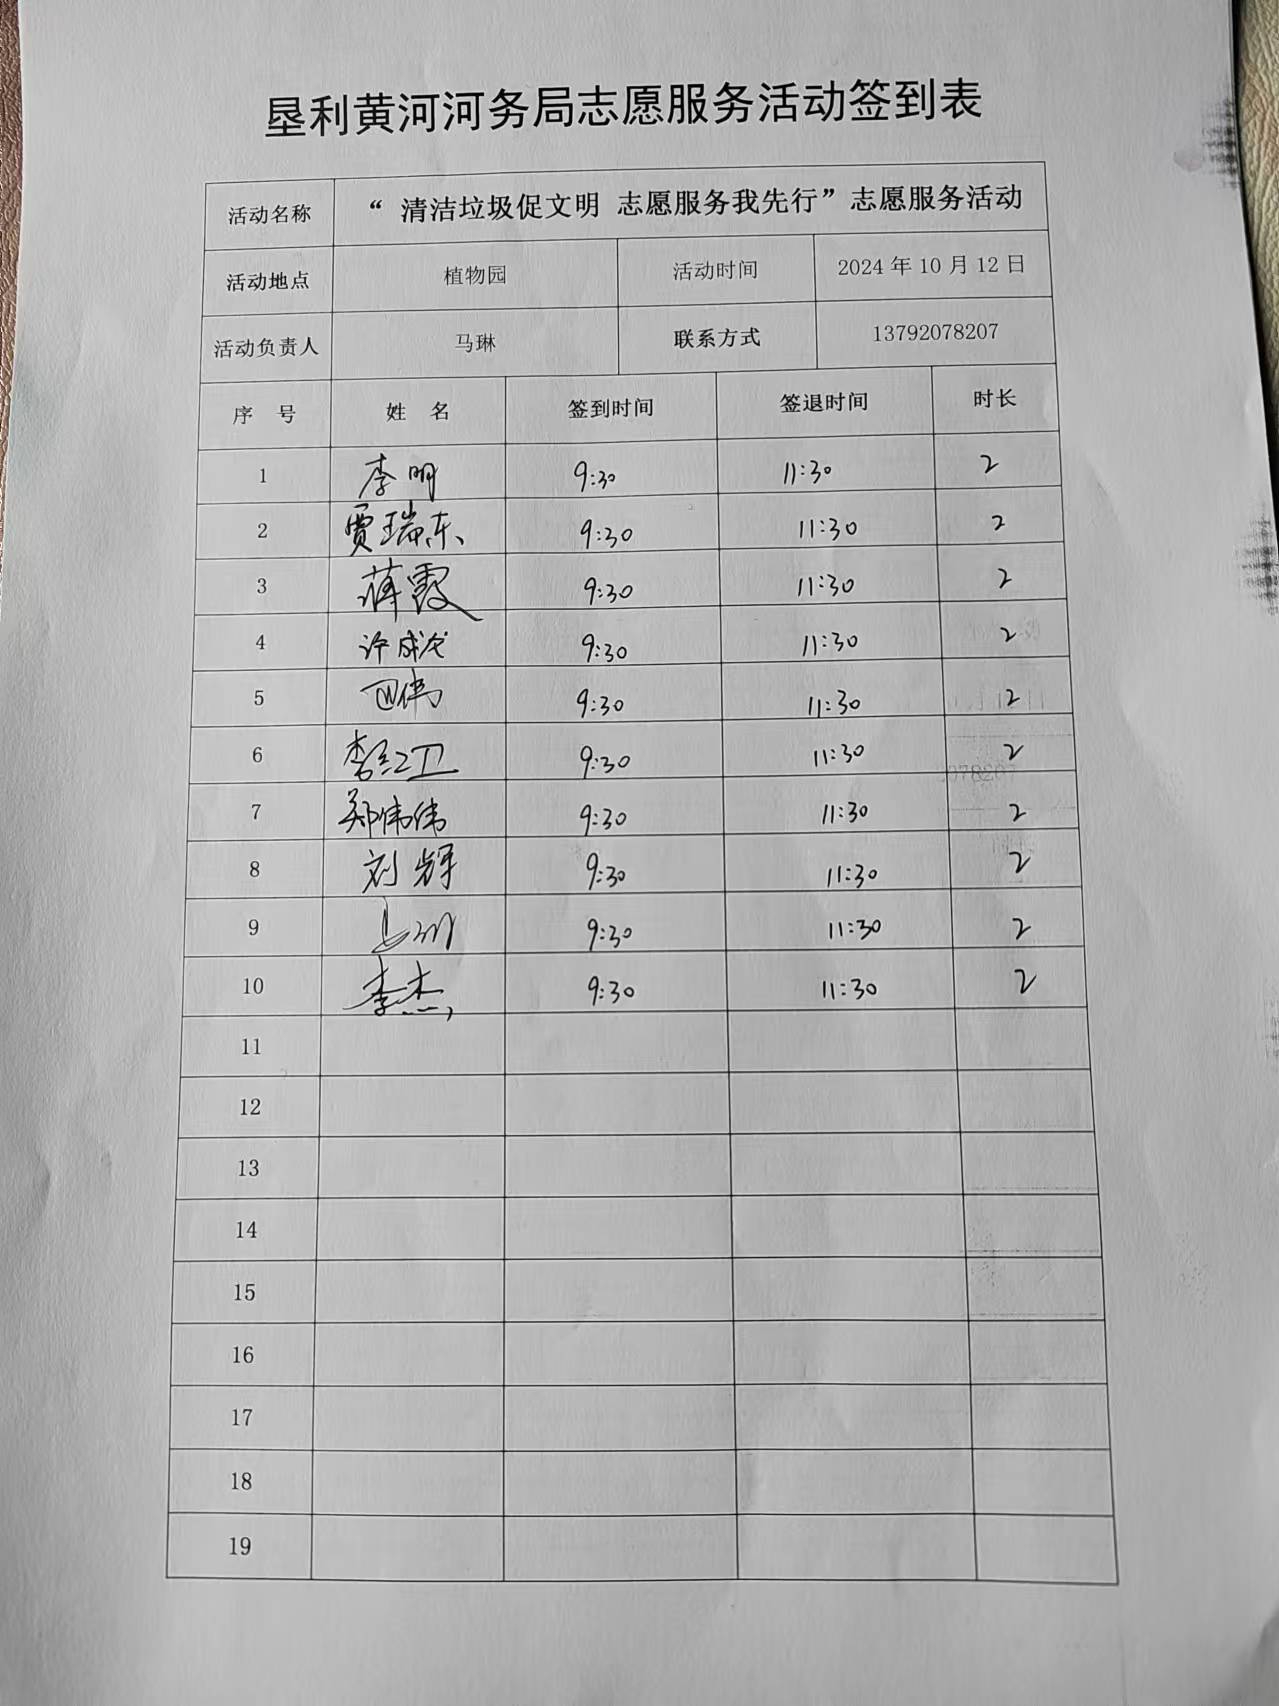 垦利黄河河务局志愿服务活动签到表
活动名称 “ 清洁垃圾促文明 志愿服务我先行”志愿服务活动
活动地点 植物园 活动时间 2024 年 10 月 12 日
活动负责人 马琳 联系方式 13792078207
序 号 姓 名 签到时间 签退时间 时长
1 李明 9:30 11:30 2
2 贾瑞东 9:30 11:30 2
3 蒋霞 9:30 11:30 2
4 许成龙 9:30 11:30 2
5 9:30 11:30 2
6 李红卫 9:30 11:30 2
7 郑伟伟 9:30 11:30 2
8 刘辉 9:30 11:30 2
9 9:30 11:30 2
10 李杰 9:30 11:30 2
11
12
13
14
15
16
17
18
19